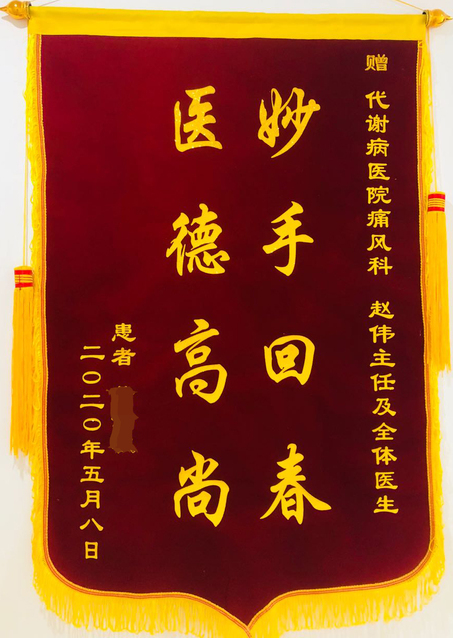 赠 代谢病医院痛风科 赵伟主任及全体医生
妙手回春
医德高尚
患者
二〇二〇年五月八日